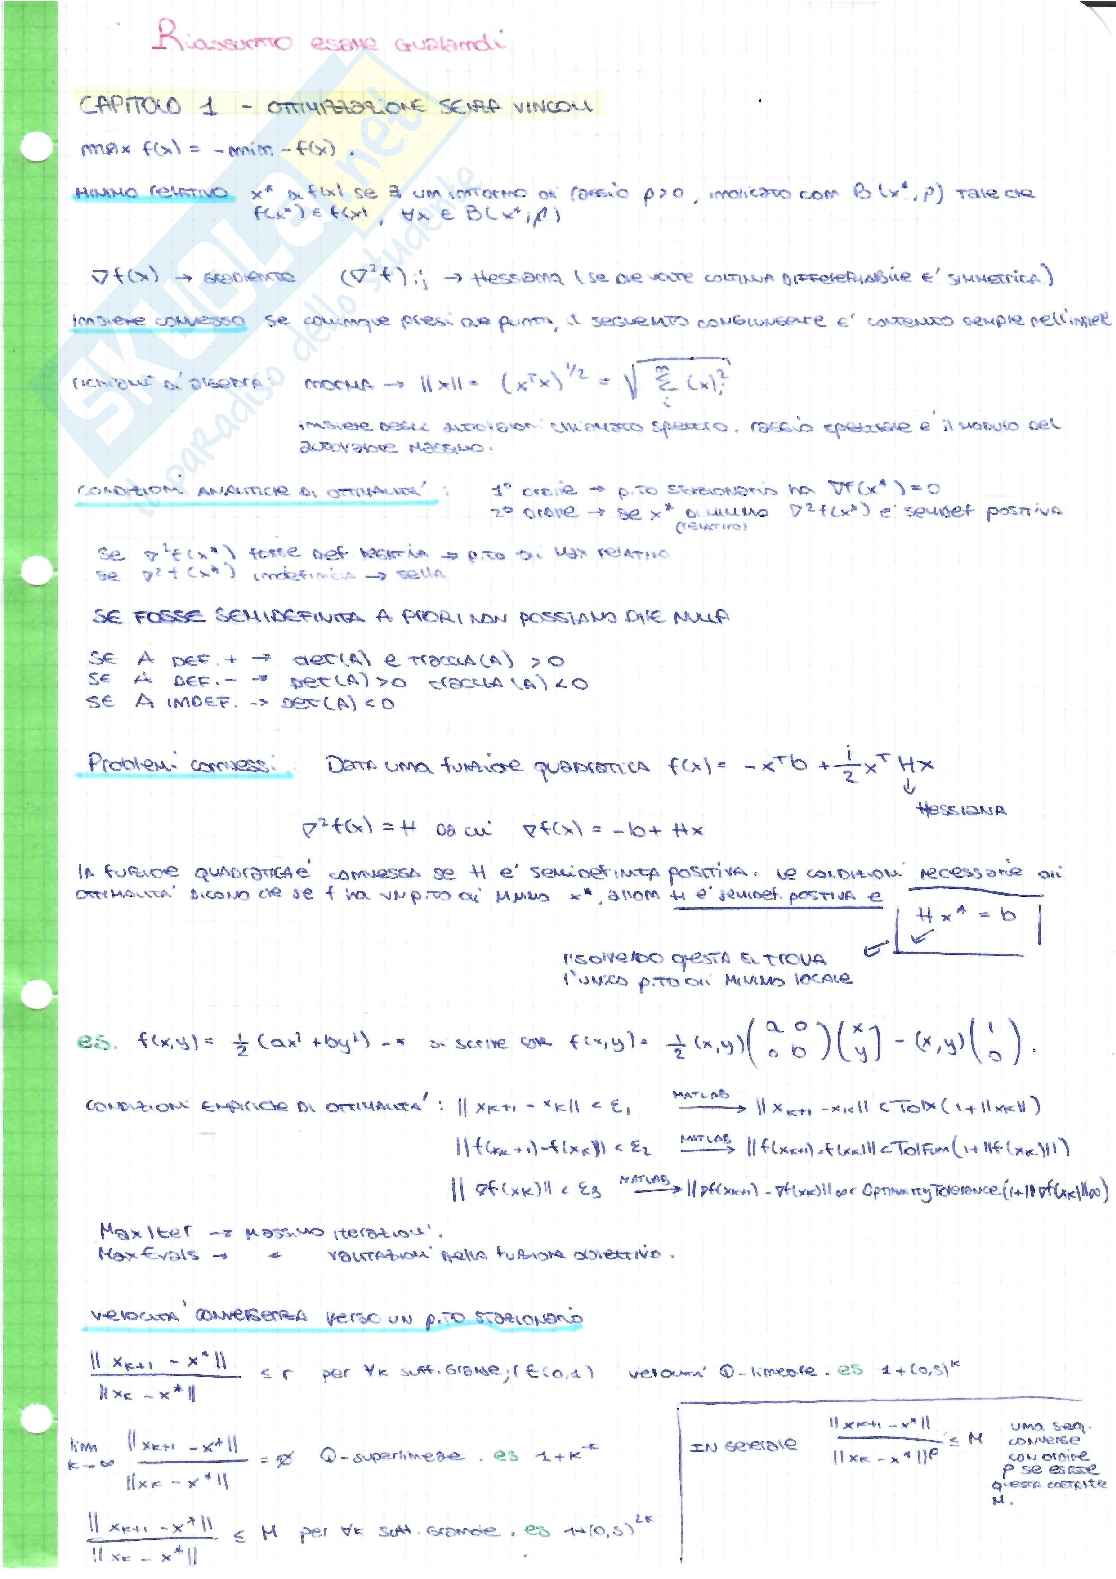 Riassunto esame Gualandi
CAPITOLO 1 - OTTIMIZZAZIONE SENZA VINCOLI
max f(x) = -min -f(x).
MINIMO relativo x* di f(x) se ∃ un intorno di raggio ρ>0, indicato com B(x*, ρ) tale che
f(x*) ≤ f(x), ∀x ∈ B(x*, ρ)
∇f(x) → gradiente (∇²f)ij → Hessiana (se due volte continua differenziabile e' simmetrica)
insieme convesso se comunque presi due punti, il segmento congiungente e' contenuto sempre nell'insieme
richiami di algebra NORMA → ||x|| = (xᵀx)^1/2 = √Σ(x)i²
insieme degli autovalori chiamato spettro. raggio spettrale è il modulo del
autovalore massimo.
CONDIZIONI ANALITICHE DI OTTIMALITA': 1° ordine → p.to stazionario ha ∇f(x*) = 0
2° ordine → se x* di minimo ∇²f(x*) e' semidef positiva
(relativo)
se ∇²f(x*) fosse def negativa → p.to di max relativo
se ∇²f(x*) indefinita → sella
SE FOSSE SEMIDEFINITA A PRIORI NON POSSIAMO DIRE NULLA
SE A DEF. + → det(A) e traccia(A) > 0
SE A DEF. - → DET(A)>0 traccia(A)<0
SE A INDEF. → DET(A)<0
Problemi convessi: Data una funzione quadratica f(x) = -xᵀb + 1/2 xᵀHx
↓
Hessiana
∇²f(x) = H da cui ∇f(x) = -b + Hx
la funzione quadratica e' convessa se H e' semidefinita positiva. le condizioni necessarie di
ottimalita' dicono che se f ha un p.to di minimo x*, allora H e' semidef. positiva e
Hx* = b
risolvendo questa si trova
l'unico p.to di minimo locale
es. f(x,y) = 1/2 (ax² + by²) - x si scrive con f(x,y) = 1/2 (x,y) (a 0 0 b) (x y) - (x,y) (1 0).
CONDIZIONI EMPIRICHE DI OTTIMALITA': ||xk+1 - xk|| < ε1 MATLAB → ||xk+1 - xk|| < Tolx(1+||xk||)
||f(xk+1)-f(xk)|| < ε2 MATLAB → ||f(xk+1)-f(xk)|| < TolFun(1+||f(xk)||)
||∇f(xk)|| < ε3 MATLAB → ||∇f(xk+1) - ∇f(xk)||∞ < OptimalityTolerance.(1+||∇f(xk)||∞)
MaxIter → massimo iterazioni.
MaxEvals → " valutazioni della funzione obiettivo.
velocita' convergenza verso un p.to stazionario
||xk+1 - x*|| / ||xk - x*|| ≤ r per ∀k suff. grande, r∈(0,1) Q-lineare. es 1+(0,5)^k
lim k→∞ ||xk+1 - x*|| / ||xk - x*|| = 0 Q-superlineare. es 1+k^-k
||xk+1 - x*|| / ||xk - x*|| ≤ M per ∀k suff. grande. es 1+(0,5)^2k
IN GENERALE ||xk+1 - x*|| / ||xk - x*||^p ≤ M
una seq.
converge
con ordine
p se esiste
questa costante
M.
SKUOLA.net
il paradiso dello studente